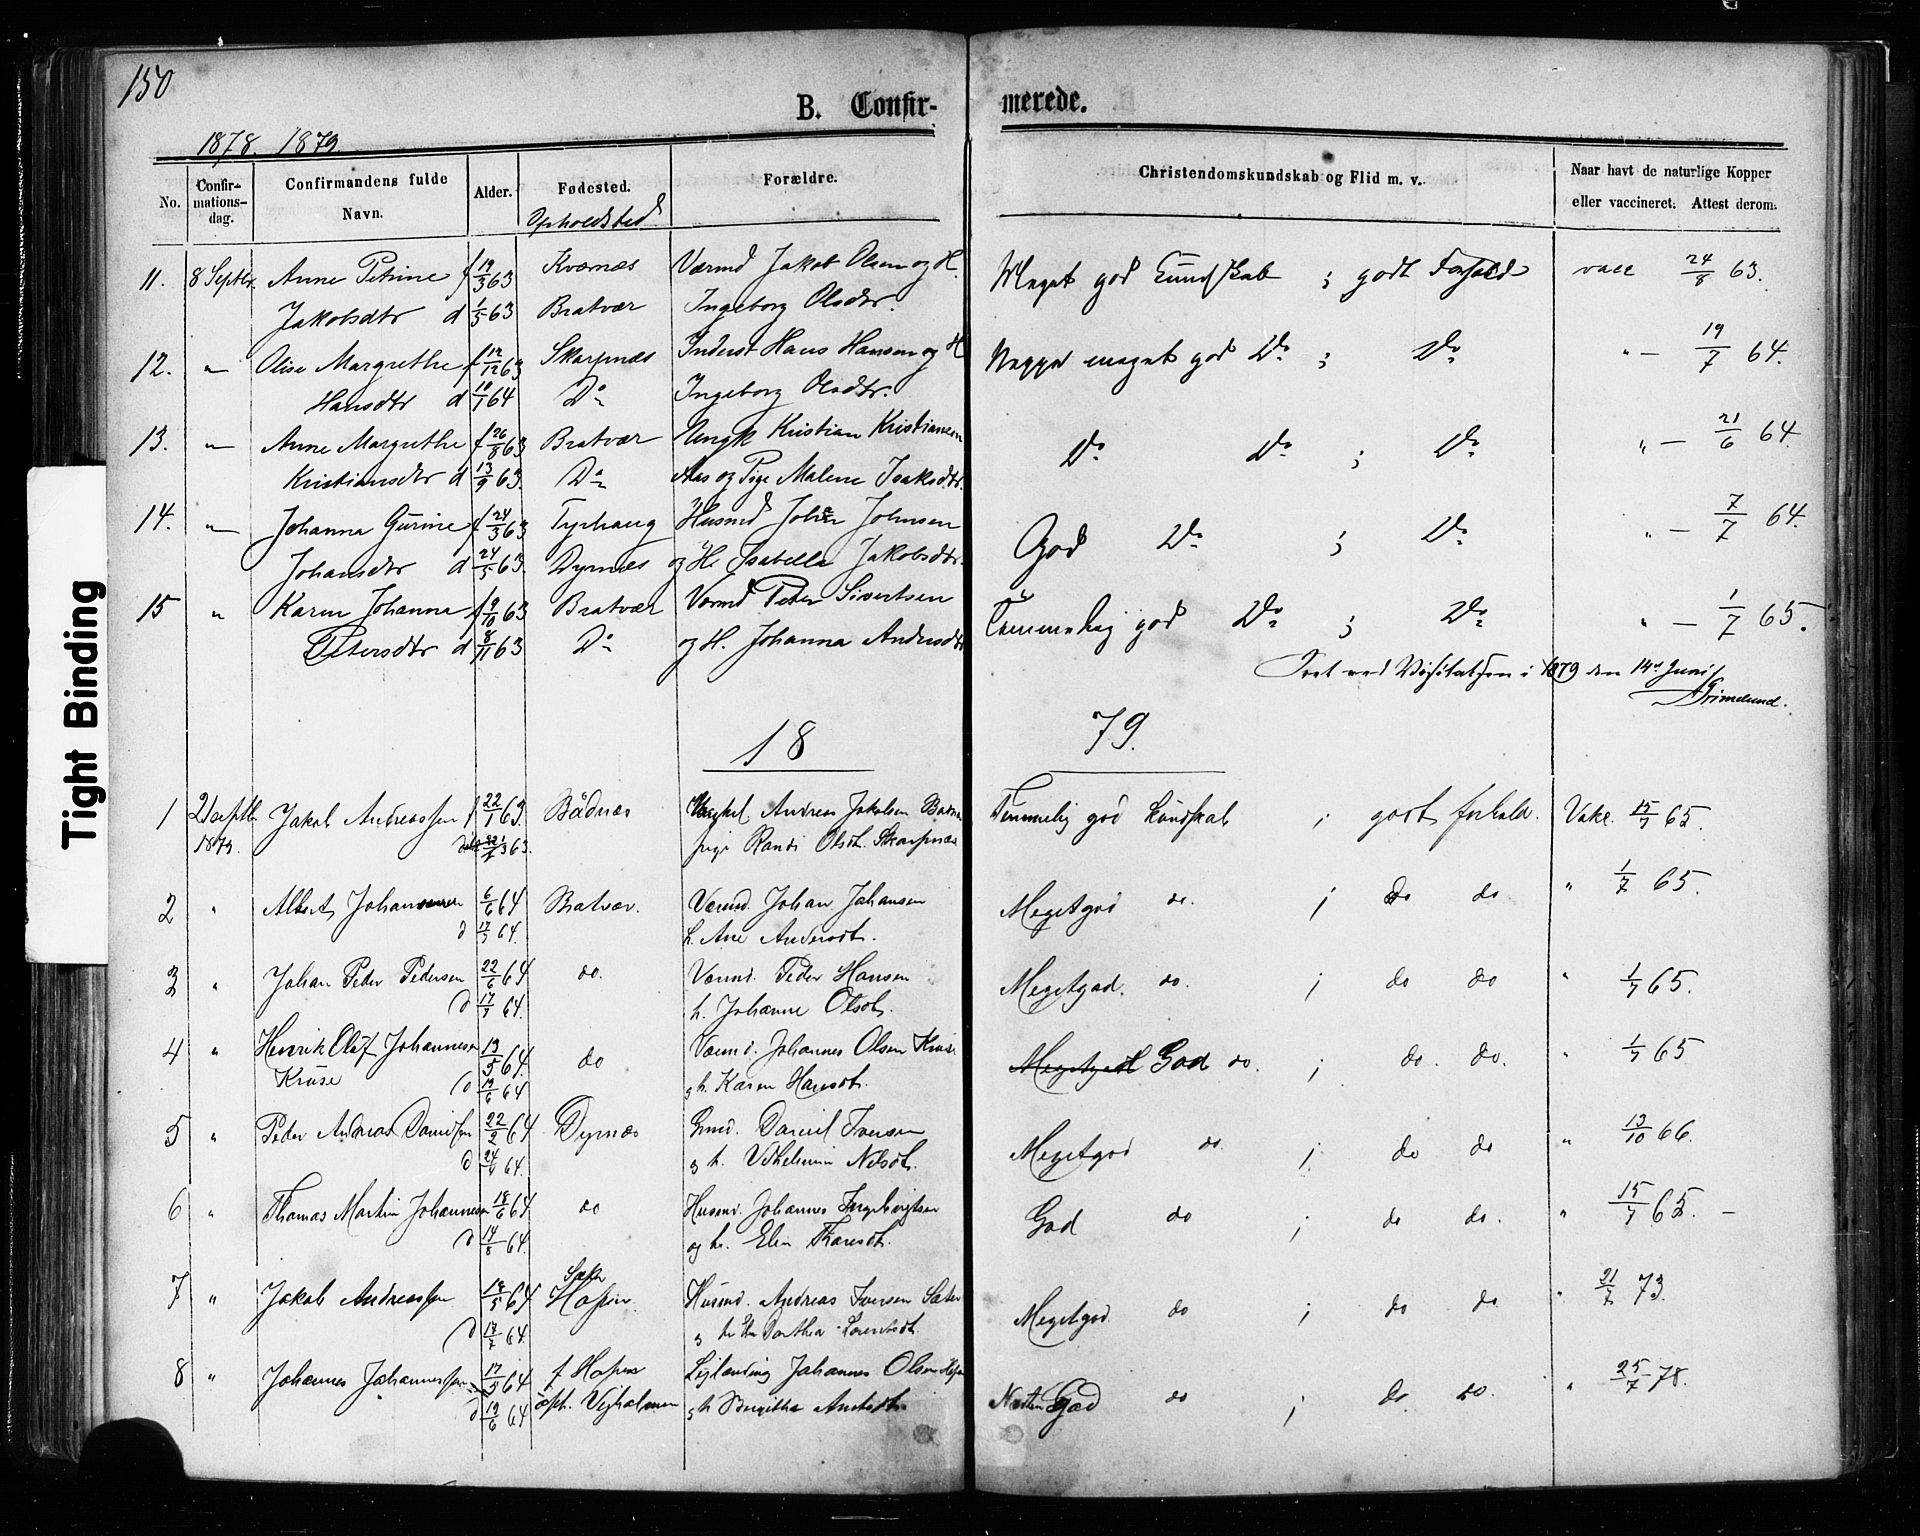 150
B. Confir-
merede.
1878. 1879
No.
Confir-
mations-
dag.
Confirmandens fulde
Navn.
Alder.
Fødested.
Opholdsted
Forældre.
Christendomskundskab og Flid m. v.
Naar havt de naturlige Kopper
eller vaccineret. Attest derom.
11. 8 Septbr. Anne Petrine f 19/3 63 Kvernæs Værmd Jakob Olsen og H. Meget god Kundskab ; godt Forhold vacc 24/8 63.
Jakobsdtr d 1/5 63 Bratvær Ingeborg Olsdtr.
12. " Olise Margrethe f 12/12 63 Skarpnæs Inderst Hans Hansen og H Neppe meget god Do ; Do " — 19/7 64.
Hansdtr d 10/1 64 Do Ingeborg Olsdtr.
13. " Anne Margrethe f 26/8 63 Bratvær Ungk Kristian Kristiansen Do Do ; Do " — 21/6 64.
Kristiansdtr d 13/9 63. Do Aas og Pige Malene Isaksdtr.
14. " Johanna Gurine f 24/3 63 Tyrhaug Husmd Johan Johnsen God Do ; Do " — 7/7 64.
Johansdtr d 24/5 63. Dyrnæs og H. Isabella Jakobsdtr.
15 " Karen Johanna f 9/10 63 Bratvær Værmd Peter Sivertsen Temmelig god Do ; Do " — 1/7 65.
Petersdtr d 8/11 63 Do og H. Johanna Andersdtr
Seet ved Visitatsen i 1879 den 14de Juni
Grimelund.
18 79.
1 21 Septbr Jakob Andreassen f 22/1 63 Bådnæs Ungkel Andreas Jakobsen Badnæs Temmelig god Kundskab ; godt forhold. Vakc. 15/7 65.
1879. 63. pige Randi Olsdt. Skarpnæs
2 " Albert Johansen 6/6 64 Bratvær. Værmd. Johan Johansen Megetgod do. ; do do " 1/7 65.
d 17/7 64. h. Ane Andersdt.
3 " Johan Peder Pedersen 22/6 64 do. Værmd. Peder Hansen Megetgod. do. ; do do " 1/7 65.
d 17/7 64. h. Johanne Olsdt.
4 " Henrik Olaf Johannesen 13/5 64. do Værmd. Johannes Olsen Kruse Megetgod God do. ; do. do. " 1/7 65
Kruse d 19/6 64 g h. Karen Hansdt.
5 " Peder Andreas Danielsen 22/2 64 Dyrnæs Gmd. Daniel Iversen Megetgod do. ; do do " 13/10 66.
d 24/4 64. g h. Vilhelmin Nilsdt.
6 " Thomas Martin Johannesen 18/6 64 do Husmd. Johannes Ingebrigtsen God do ; do do. " 15/7 65. –
d 14/8 64. og h. Elen Tharesdt.
7 " Jakob Andreassen 18/5 64 Sæter Hopen. Husmd. Andreas Iversen Sæter Megetgod do ; do do " 21/7 73.
d 17/7 64. g h. Dorthea Lorentsdt.
8 " Johannes Johannessen 17/5 64 f Hopen Leilending Johannes Olsen Hopen Næsten God do ; do do. " 25/7 78.
d 19/6 64 oph. Vejholmen g h Birgitha Arntsdt.
Tight Binding